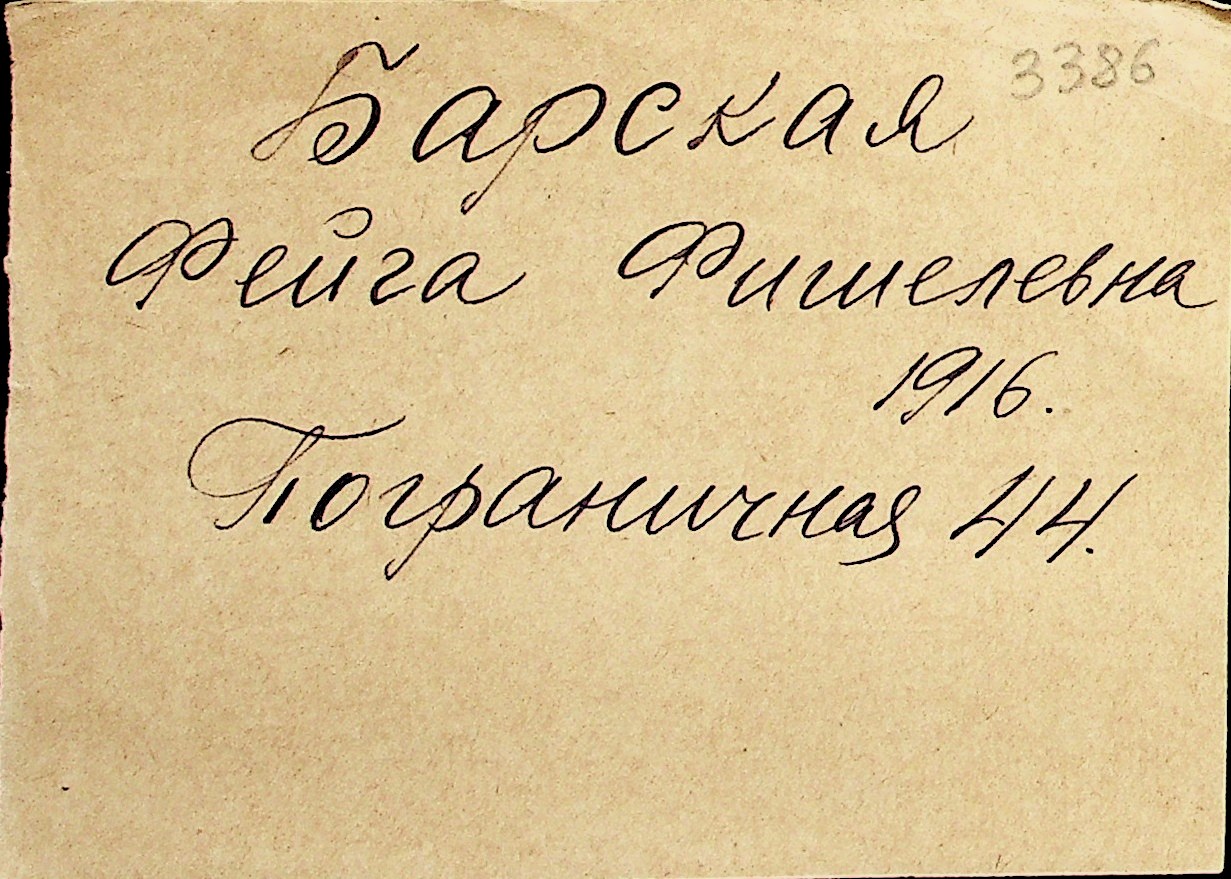 3386
Барская
Фейга Фишелевна
1916.
Пограничная 44.